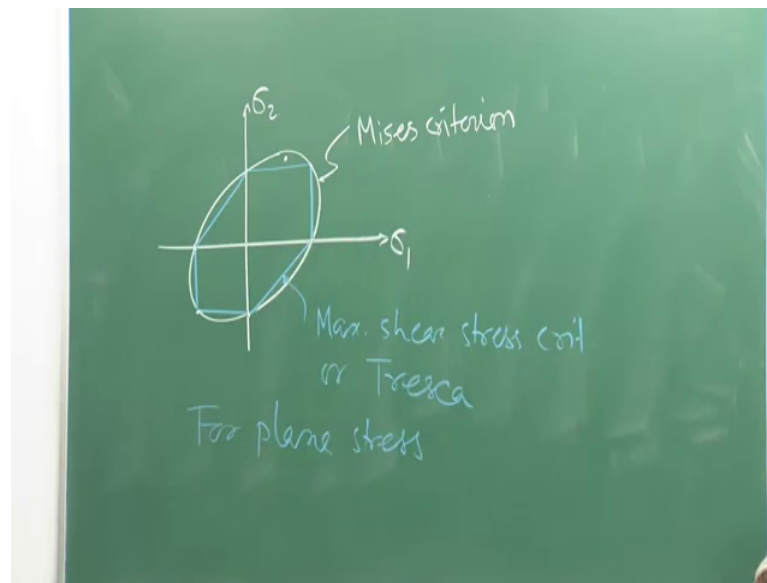 σ₂
Mises criterion
σ₁
Max. shear stress crit
or Tresca
For plane stress